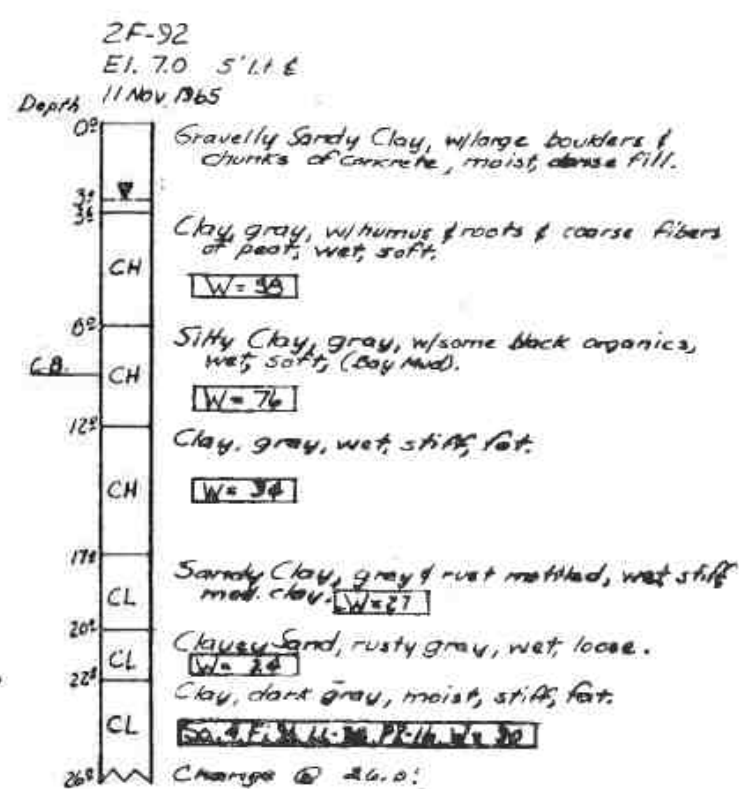 2F-92
El. 7.0 5' Lt ₵
11 Nov. 1965
Depth
0⁰
Gravelly Sandy Clay, w/large boulders &
chunks of concrete, moist, dense fill.
3⁰
3⁶
Clay, gray, w/humus & roots & coarse fibers
of peat, wet, soft.
CH
W = 98
8⁰
Silty Clay, gray, w/some black organics,
wet, soft, (Bay Mud).
C.B.
CH
W = 76
12⁰
Clay, gray, wet, stiff, fat.
CH
W = 34
17⁰
Sandy Clay, gray & rust mottled, wet, stiff
med. clay. W=27
CL
20⁰
Clayey Sand, rusty gray, wet, loose.
CL
W = 24
22⁰
Clay, dark gray, moist, stiff, fat.
CL
26⁰
Change @ 26.0'